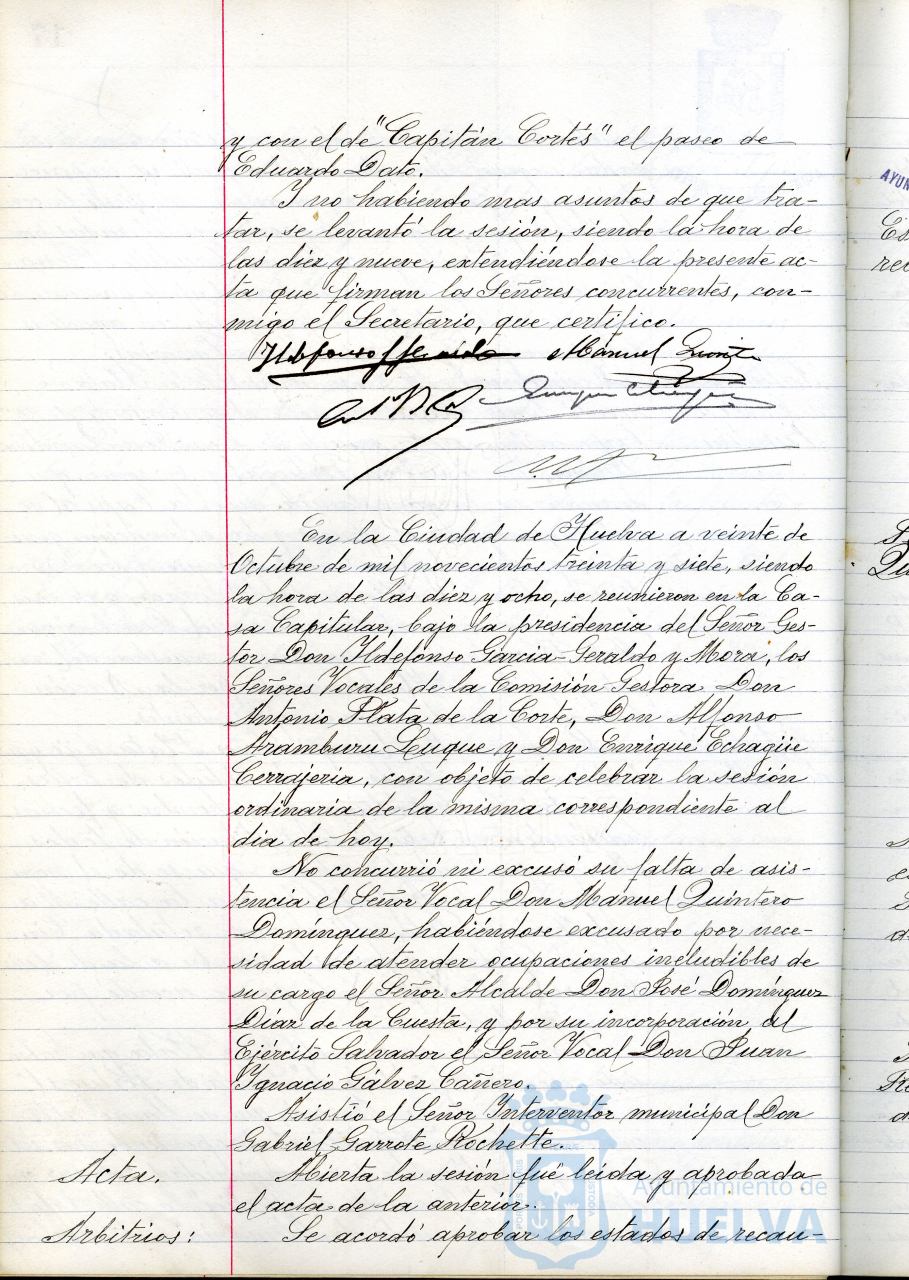 y con el de "Capitán Cortés" el paseo de
Eduardo Dato.
Y no habiendo mas asuntos de que tra-
tar, se levantó la sesión, siendo la hora de
las diez y nueve, extendiéndose la presente ac-
ta que firman los Señores concurrentes, con-
migo el Secretario, que certifico.
Manuel
En la Ciudad de Huelva a veinte de
Octubre de mil novecientos treinta y siete, siendo
la hora de las diez y ocho, se reunieron en la Ca-
sa Capitular, bajo la presidencia del Señor Ges-
tor Don Ildefonso Garcia-Geraldo y Mora, los
Señores Vocales de la Comisión Gestora Don
Antonio Plata de la Corte, Don Alfonso
Aramburu Luque y Don Enrique Echagüe
Cerrajeria, con objeto de celebrar la sesión
ordinaria de la misma correspondiente al
dia de hoy.
No concurrió ni excusó su falta de asis-
tencia el Señor Vocal Don Manuel Quintero
Domínguez, habiéndose excusado por nece-
sidad de atender ocupaciones ineludibles de
su cargo el Señor Alcalde Don José Domínguez
Díaz de la Cuesta, y por su incorporación al
Ejército Salvador el Señor Vocal Don Juan
Ignacio Gálvez Cañero.
Asistió el Señor Interventor municipal Don
Gabriel Garrote Rochette.
Acta. Abierta la sesión fué leida y aprobada
el acta de la anterior.
Arbitrios: Se acordó aprobar los estados de recau-
Ayuntamiento de
HUELVA